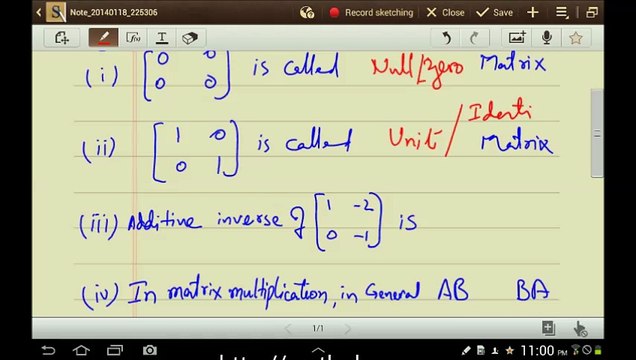 Note_20140118_225306
Record sketching
Close
Save
(i) [0 0 0 0] is called Null/zero Matrix
(ii) [1 0 0 1] is called Unit / Identi Matrix
(iii) Additive inverse of [1 -2 0 -1] is
(iv) In matrix multiplication, in General AB BA
1/1
11:00 PM